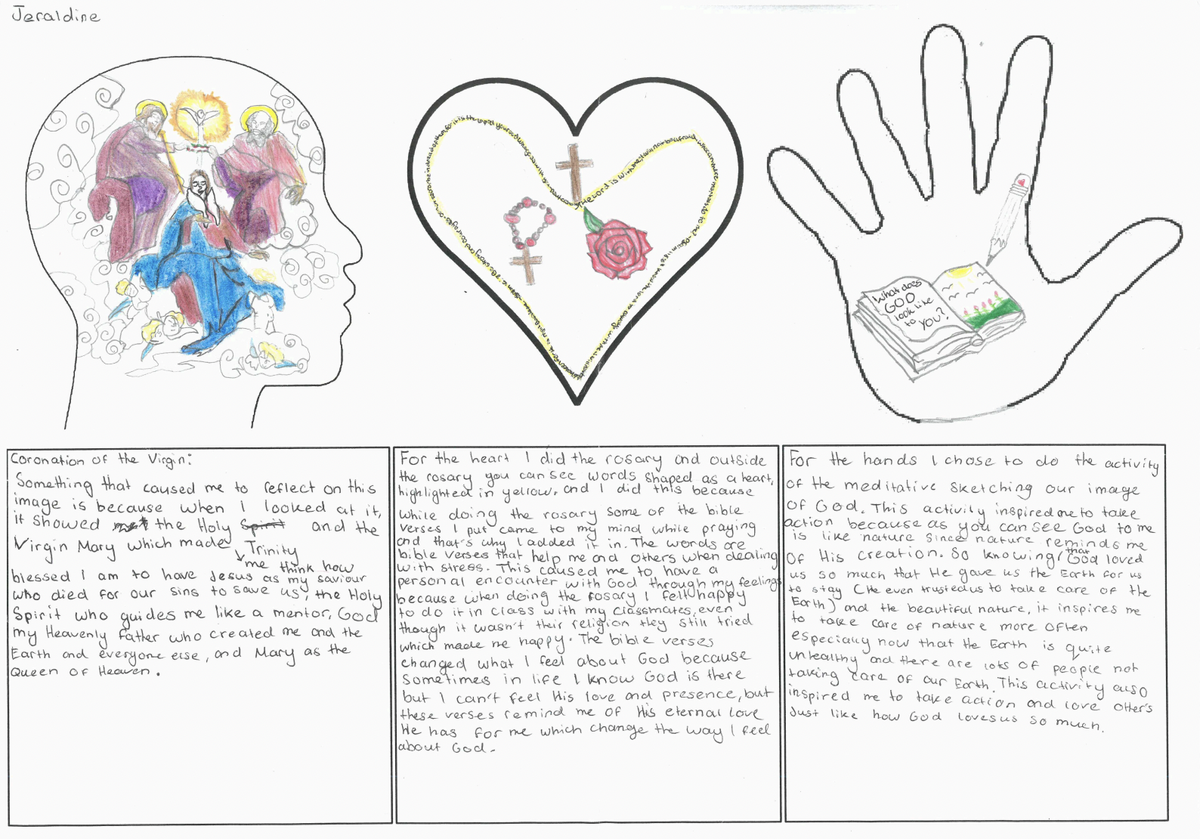 Jeraldine
What does
GOD
look like
to you?
Coronation of the Virgin:
Something that caused me to reflect on this
image is because when I looked at it,
it showed the Holy Spirit and the
Virgin Mary which made Trinity
me think how
blessed I am to have Jesus as my saviour
who died for our sins to save us, the Holy
Spirit who guides me like a mentor, God
my Heavenly Father who created me and the
Earth and everyone else, and Mary as the
Queen of Heaven.
For the heart I did the rosary and outside
the rosary you can see words shaped as a heart,
highlighted in yellow, and I did this because
while doing the rosary some of the bible
verses I put came to my mind while praying
and that's why I added it in. The words are
bible verses that help me and others when dealing
with stress. This caused me to have a
personal encounter with God through my feelings
because when doing the rosary I felt happy
to do it in class with my classmates, even
though it wasn't their religion they still tried
which made me happy. The bible verses
changed what I feel about God because
sometimes in life I know God is there
but I can't feel His love and presence, but
these verses remind me of His eternal love
He has for me which change the way I feel
about God.
For the hands I chose to do the activity
of the meditative sketching our image
of God. This activity inspired me to take
action because as you can see God to me
is like nature since nature reminds me
of His creation. So knowing that God loved
us so much that He gave us the Earth for us
to stay (He even trusted us to take care of the
Earth) and the beautiful nature, it inspires me
to take care of nature more often
especially now that the Earth is quite
unhealthy and there are lots of people not
taking care of our Earth. This activity also
inspired me to take action and love others
Just like how God loves us so much.